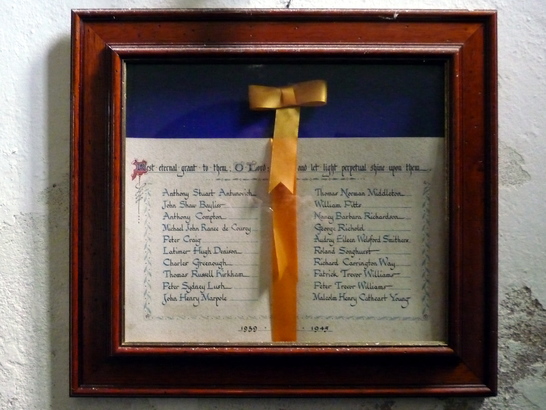 Rest eternal grant to them, O Lord and let light perpetual shine upon them
Anthony Stuart
John Shaw Baylier
Anthony Compton
Michael John Rance de Courcy
Peter Craig
Latimer Hugh Denison
Charles Greenough
Thomas Russell Kirkham
Peter Sydney Lush
John Henry Marpole
Thomas Norman Middleton
William Pitts
Nancy Barbara Richardson
George Richold
Audrey Eileen Welsford Smithers
Roland Songhurst
Richard Carrington Way
Patrick Trevor Williams
Peter Trevor Williams
Malcolm Henry Cathcart Young
1939 · 1945